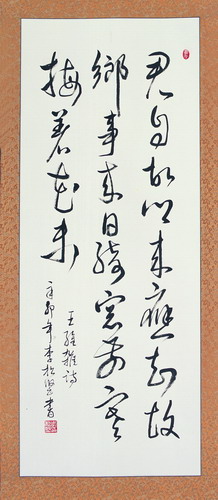 君自故乡来应知故
乡事来日绮窗前寒
梅着花未
王维杂诗
辛卯年李松
书